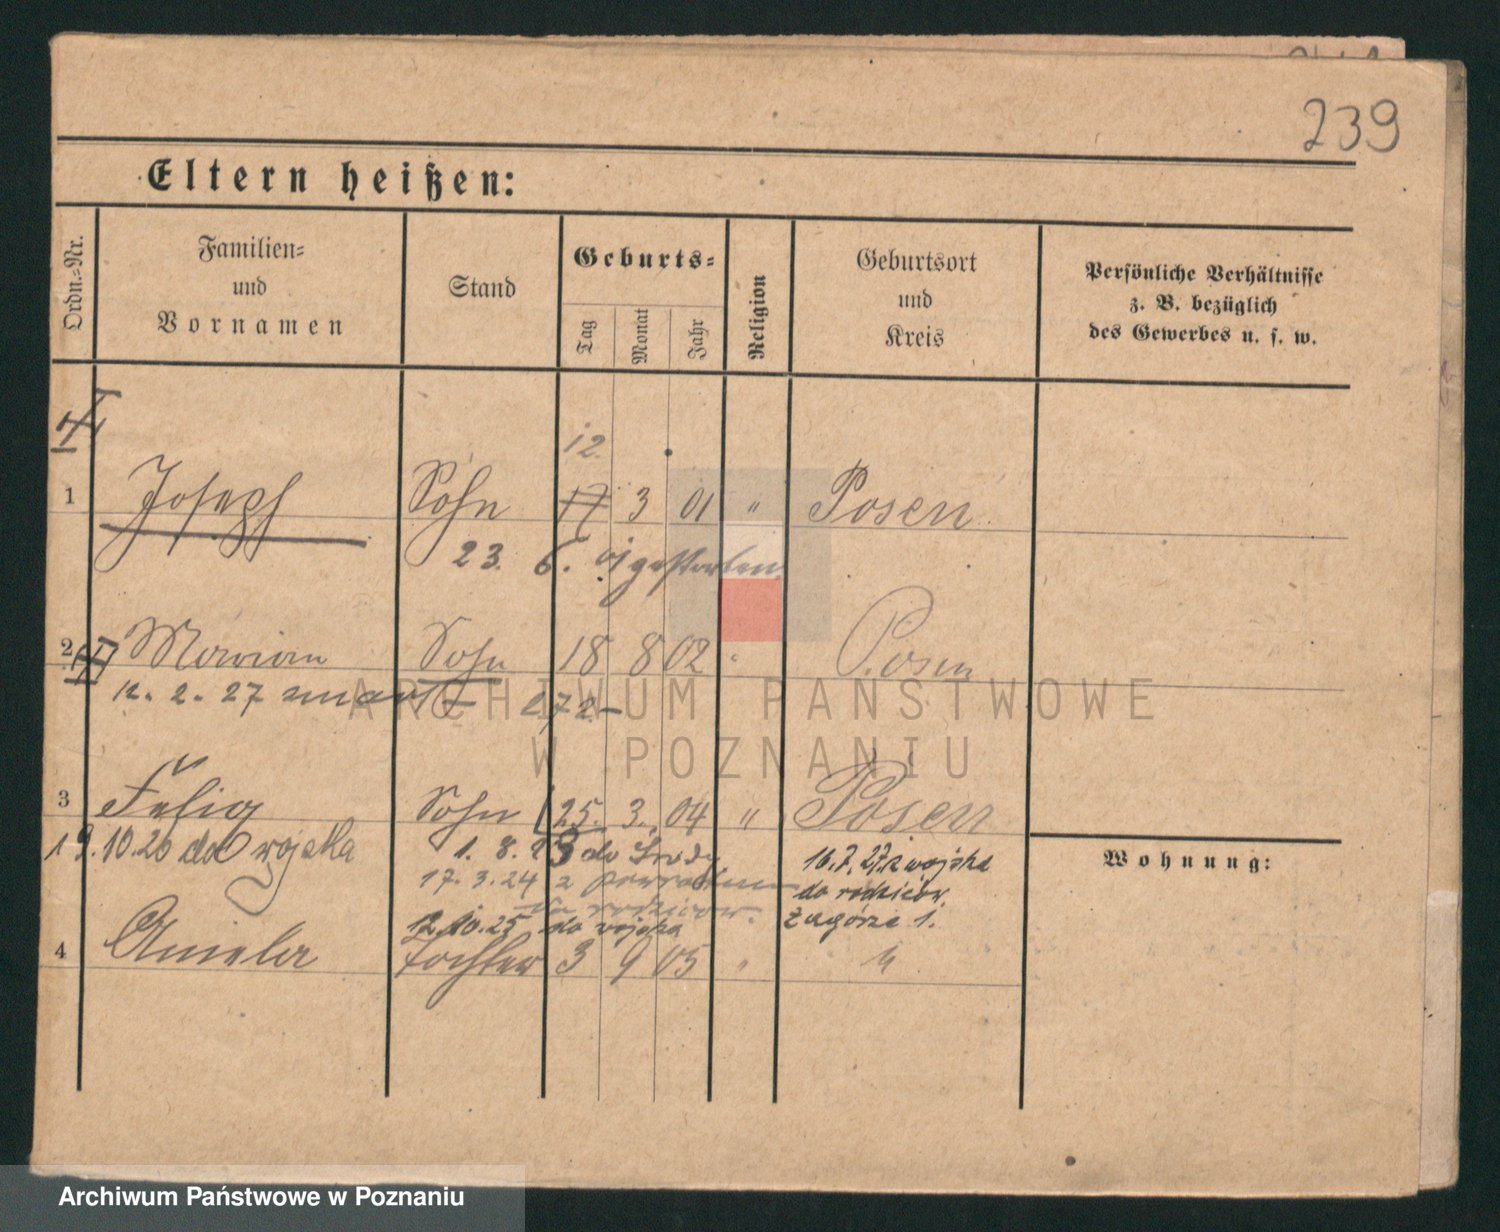 239
Eltern heißen:
Ordn.-Nr.
Familien-
und
Vornamen
Stand
Geburts-
Tag
Monat
Jahr
Religion
Geburtsort
und
Kreis
Persönliche Verhältnisse
z. B. bezüglich
des Gewerbes u. s. w.
12.
1 Joseph Sohn 17 3 01 " Posen
23. 6. 01 gestorben
2 Marian Sohn 18 8 02 " Posen
12. 2. 27 zmarł 272
3 Felix Sohn 25. 3. 04 " Posen
19.10.26 do wojska
1. 8. 23 do Środy
17. 3. 24 z powrotem
do rodziców.
12.10.25 do wojska
16.7.27 z wojska
do rodziców.
Zagórze 1.
Wohnung:
4 Aniela Tochter 3 9 05 " "
ARCHIWUM PAŃSTWOWE
W POZNANIU
Archiwum Państwowe w Poznaniu